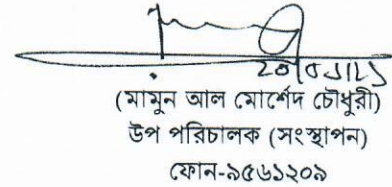 (মামুন আল মোর্শেদ চৌধুরী)
উপ পরিচালক (সংস্থাপন)
ফোন-৯৫৬১২০৯